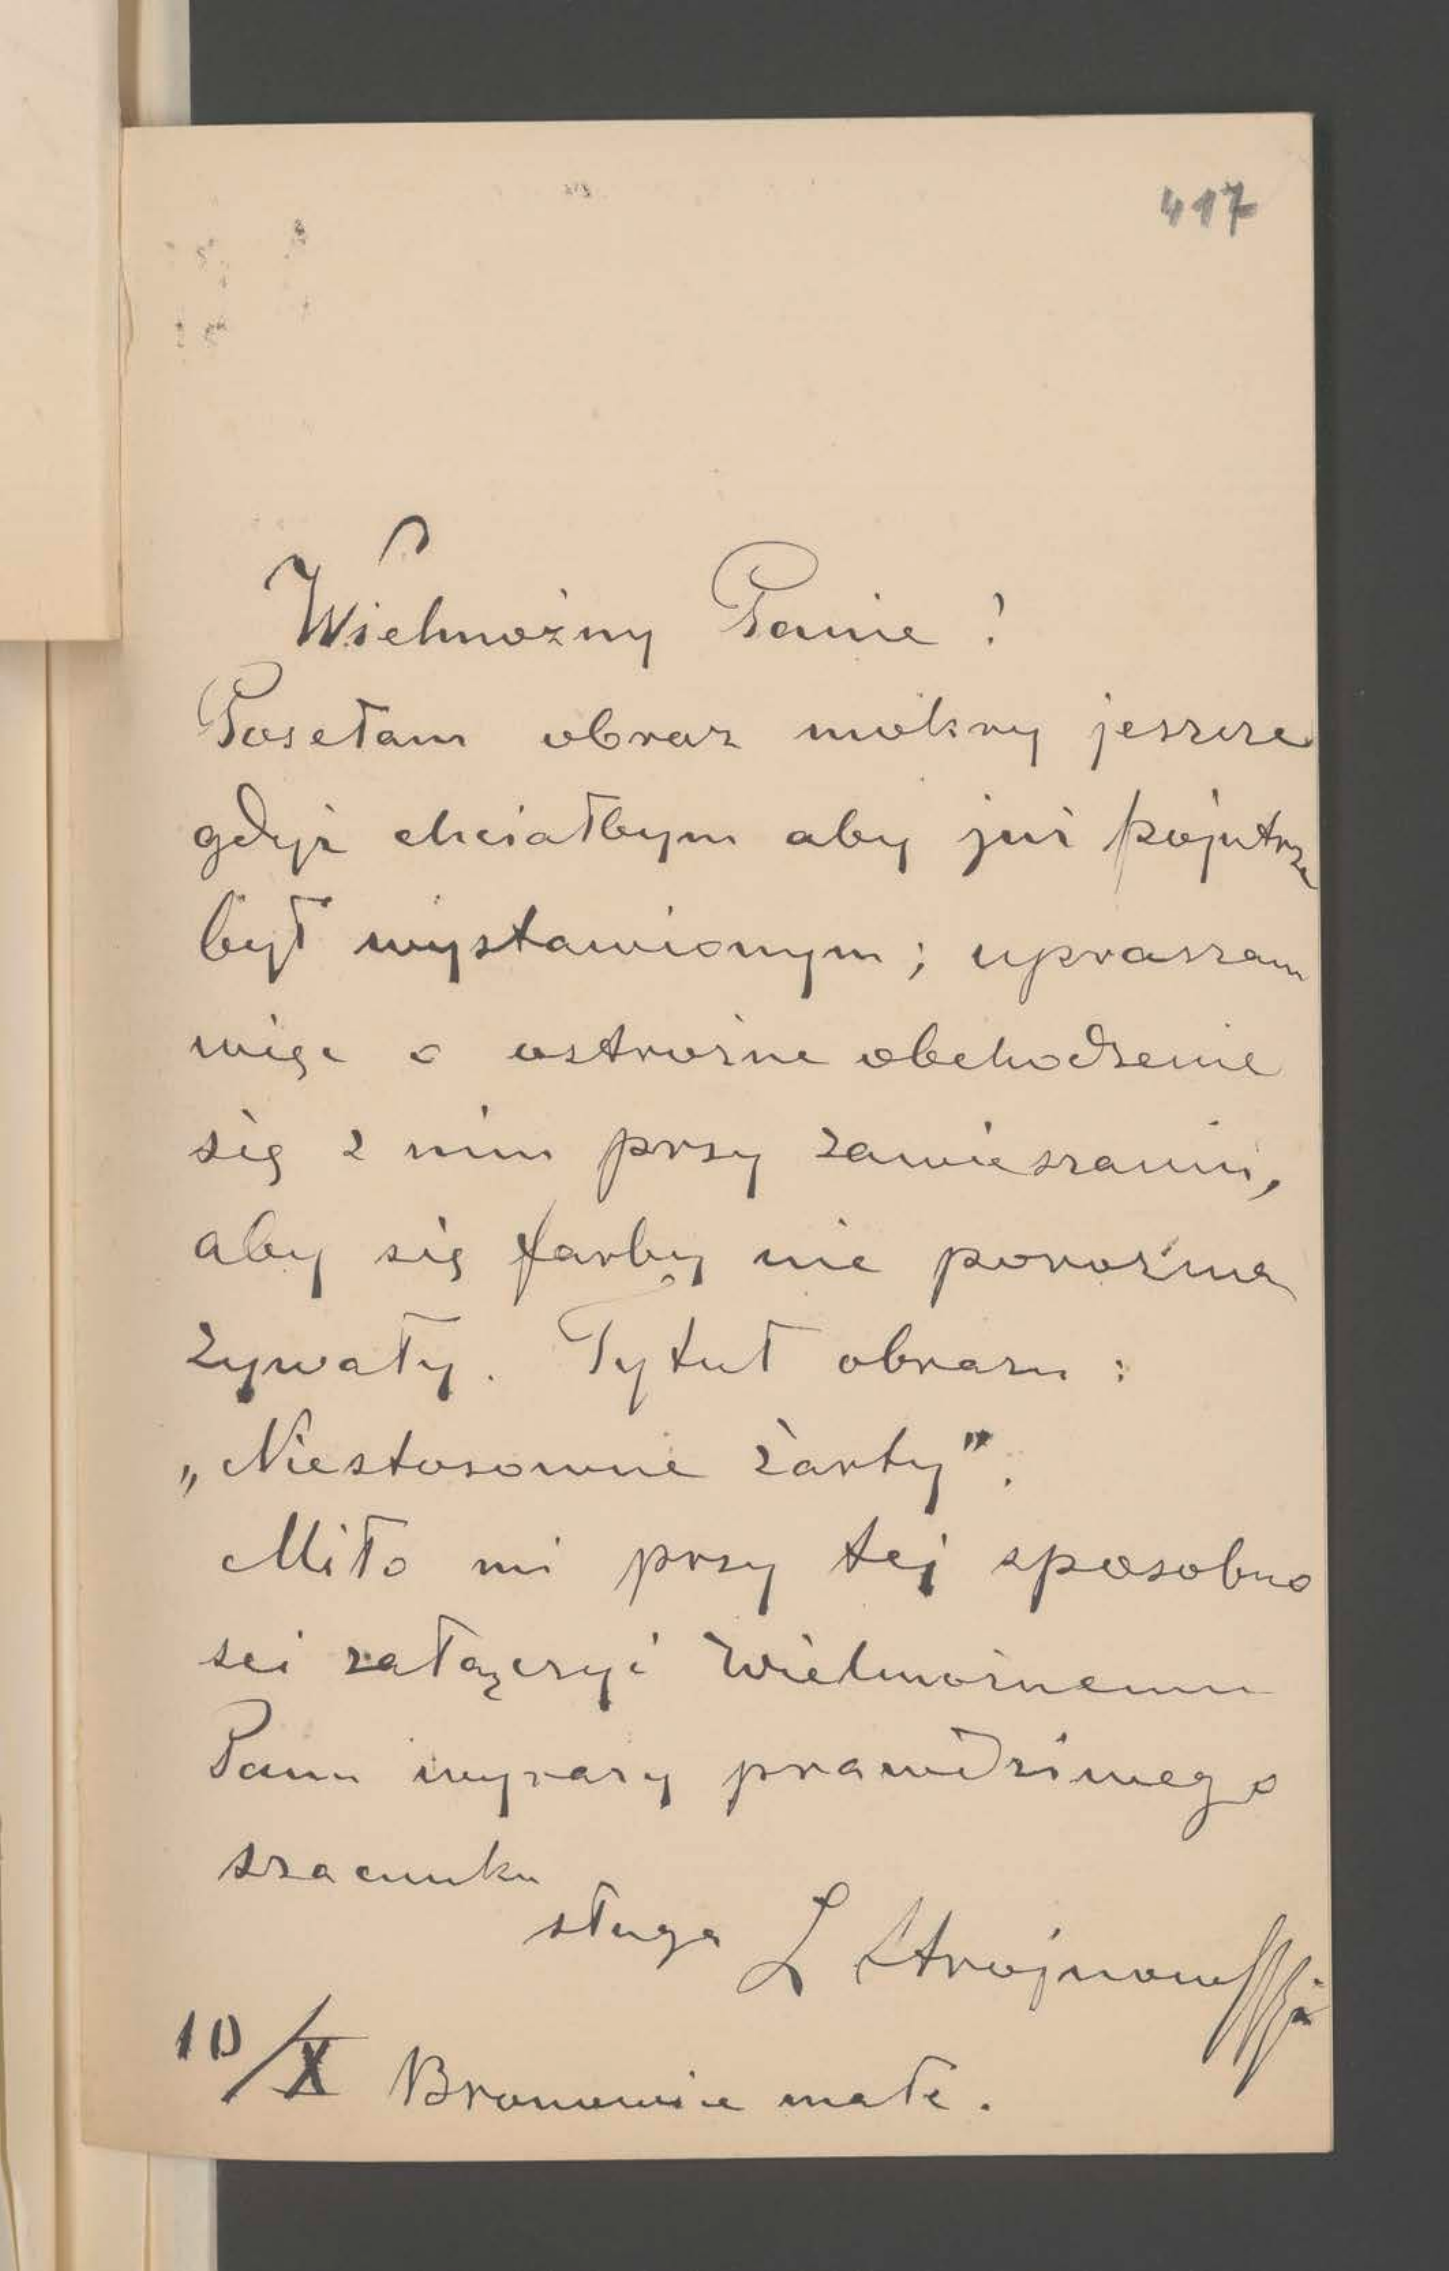 417
Wielmożny Panie!
Posełam obraz mokry jeszcze
gdyż chciałbym aby już pojutrze
był wystawionym; upraszam
więc o ostrożne obchodzenie
się z nim przy zawieszaniu,
aby się farby nie porozma
zywały. Tytuł obrazu:
„Niestosowne żarty”.
Miło mi przy tej sposobno
ści załączyć Wielmożnemu
Panu wyrazy prawdziwego
szacunku
sługa L Strojnowski
10/X Bronowice małe.